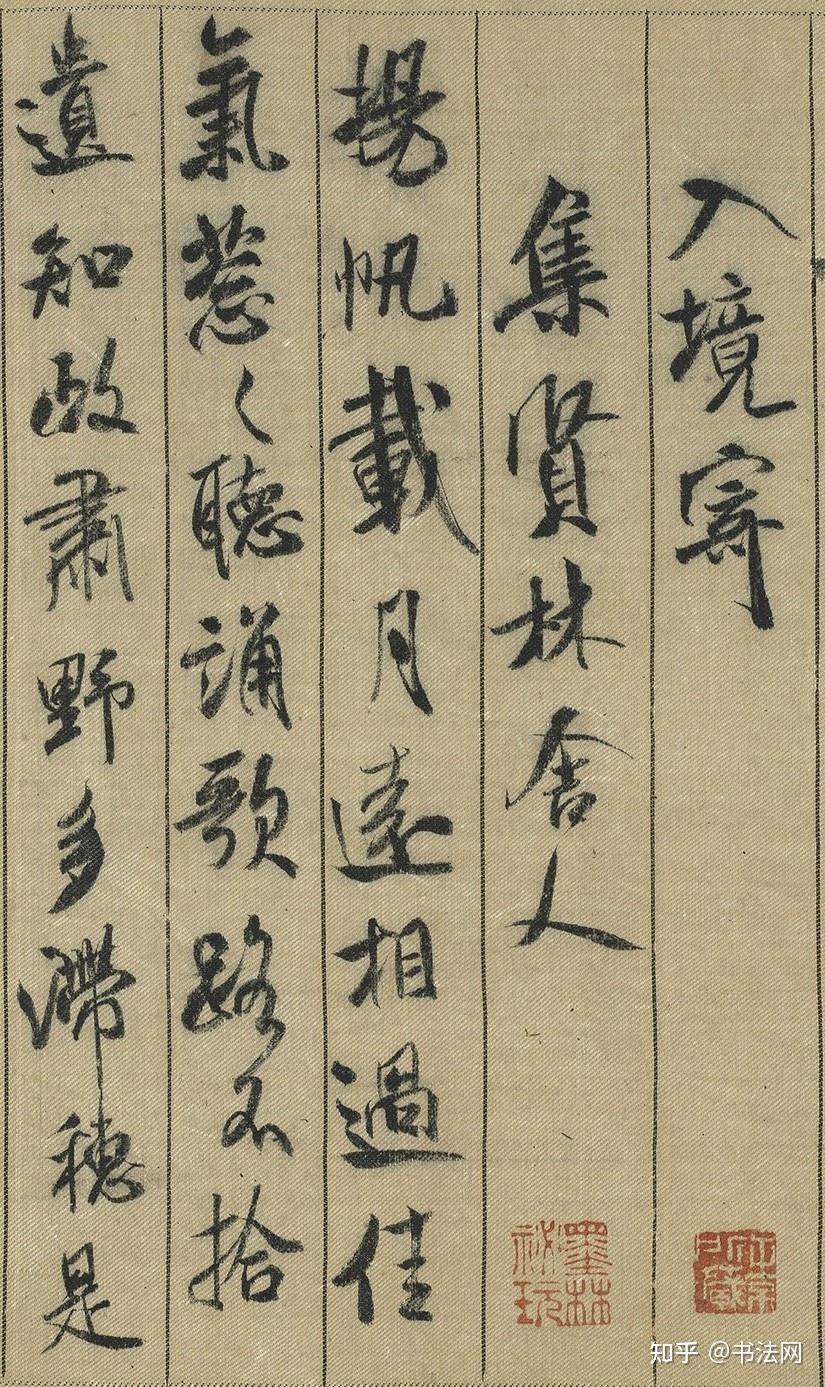 入境寄
集賢林舍人
揚帆載月遠相過佳
氣葱〻聽誦歌路不拾
遺知政肅野多滯穗是
墨林祕玩
知乎 @书法网